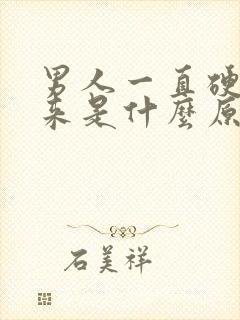 男人一直硬
来是什麼原
石美祥